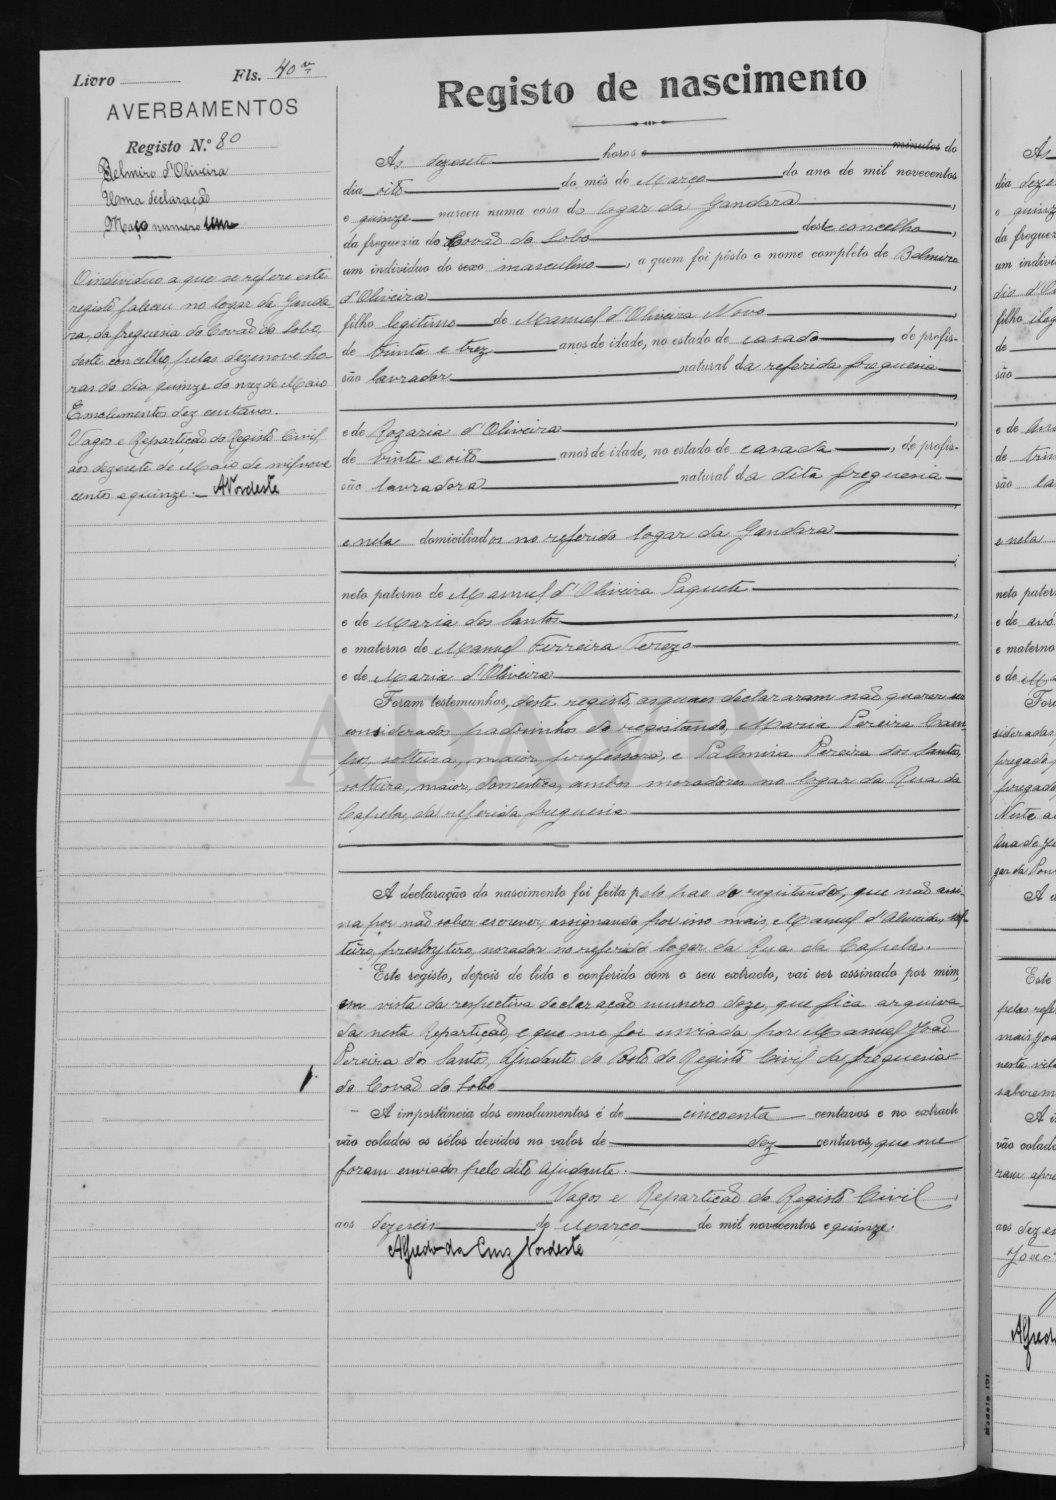 Livro Fls. 40 v
AVERBAMENTOS
Registo N.º 80
Belmiro d'Oliveira
Uma declaração
Maço numero um
O individuo a que se refere este
registo faleceu no logar da Ganda-
ra, da freguesia do Covão do Lobo,
deste concelho, pelas dezenove ho-
ras do dia quinze do mez de Maio
Emolumentos dez centavos.
Vagos e Repartição do Registo Civil
aos dezesete de Maio de mil nove
centos e quinze. ANordeste
Registo de nascimento
As dezesete horas e minutos do
dia oito do mês de Março do ano de mil novecentos
e quinze nasceu numa casa do logar da Gandara,
da freguezia do Covão do Lobo deste concelho,
um individuo do sexo masculino, a quem foi pôsto o nome completo de Belmiro
d'Oliveira,
filho legitimo de Manuel d'Oliveira Novo
de trinta e trez anos de idade, no estado de casado, de profis-
são lavrador natural da referida freguesia
e de Rozaria d'Oliveira,
de vinte e oito anos de idade, no estado de casada, de profis-
são lavradora natural da dita freguesia
e nela domiciliados no referido logar da Gandara
;
neto paterno de Manuel d'Oliveira Paquete
e de Maria dos Santos,
e materno de Manuel Ferreira Terezo
e de Maria d'Oliveira
Foram testemunhas, deste registo, as quaes declararam não querer ser
considerados padrinhos do registando, Maria Pereira Cam-
pos, solteira, maior, professora, e Palmira Pereira dos Santos,
solteira, maior, domestica, ambos moradores no logar da Rua da
Capela, da referida freguesia
A declaração do nascimento foi feita pelo pae do registando, que não assi-
na por não saber escrever, assignando por isso mais, Manuel d'Almeida, sol-
teiro, presbytero, morador no referido logar da Rua da Capela.
Este registo, depois de lido e conferido com o seu extracto, vai ser assinado por mim,
em vista da respectiva declaração numero doze, que fica arquiva-
da nesta Repartição, e que me foi enviada por Manuel João
Pereira do Santo, Ajudante do Posto do Registo Civil da freguesia
do Covão do Lobo
A importância dos emolumentos é de cincoenta centavos e no extracto
vão colados os sêlos devidos no valor de dez centavos, que me
foram enviados pelo dito ajudante.
Vagos e Repartição do Registo Civil,
aos dezeseis de Março de mil novecentos e quinze.
Alfredo da Cruz Nordeste